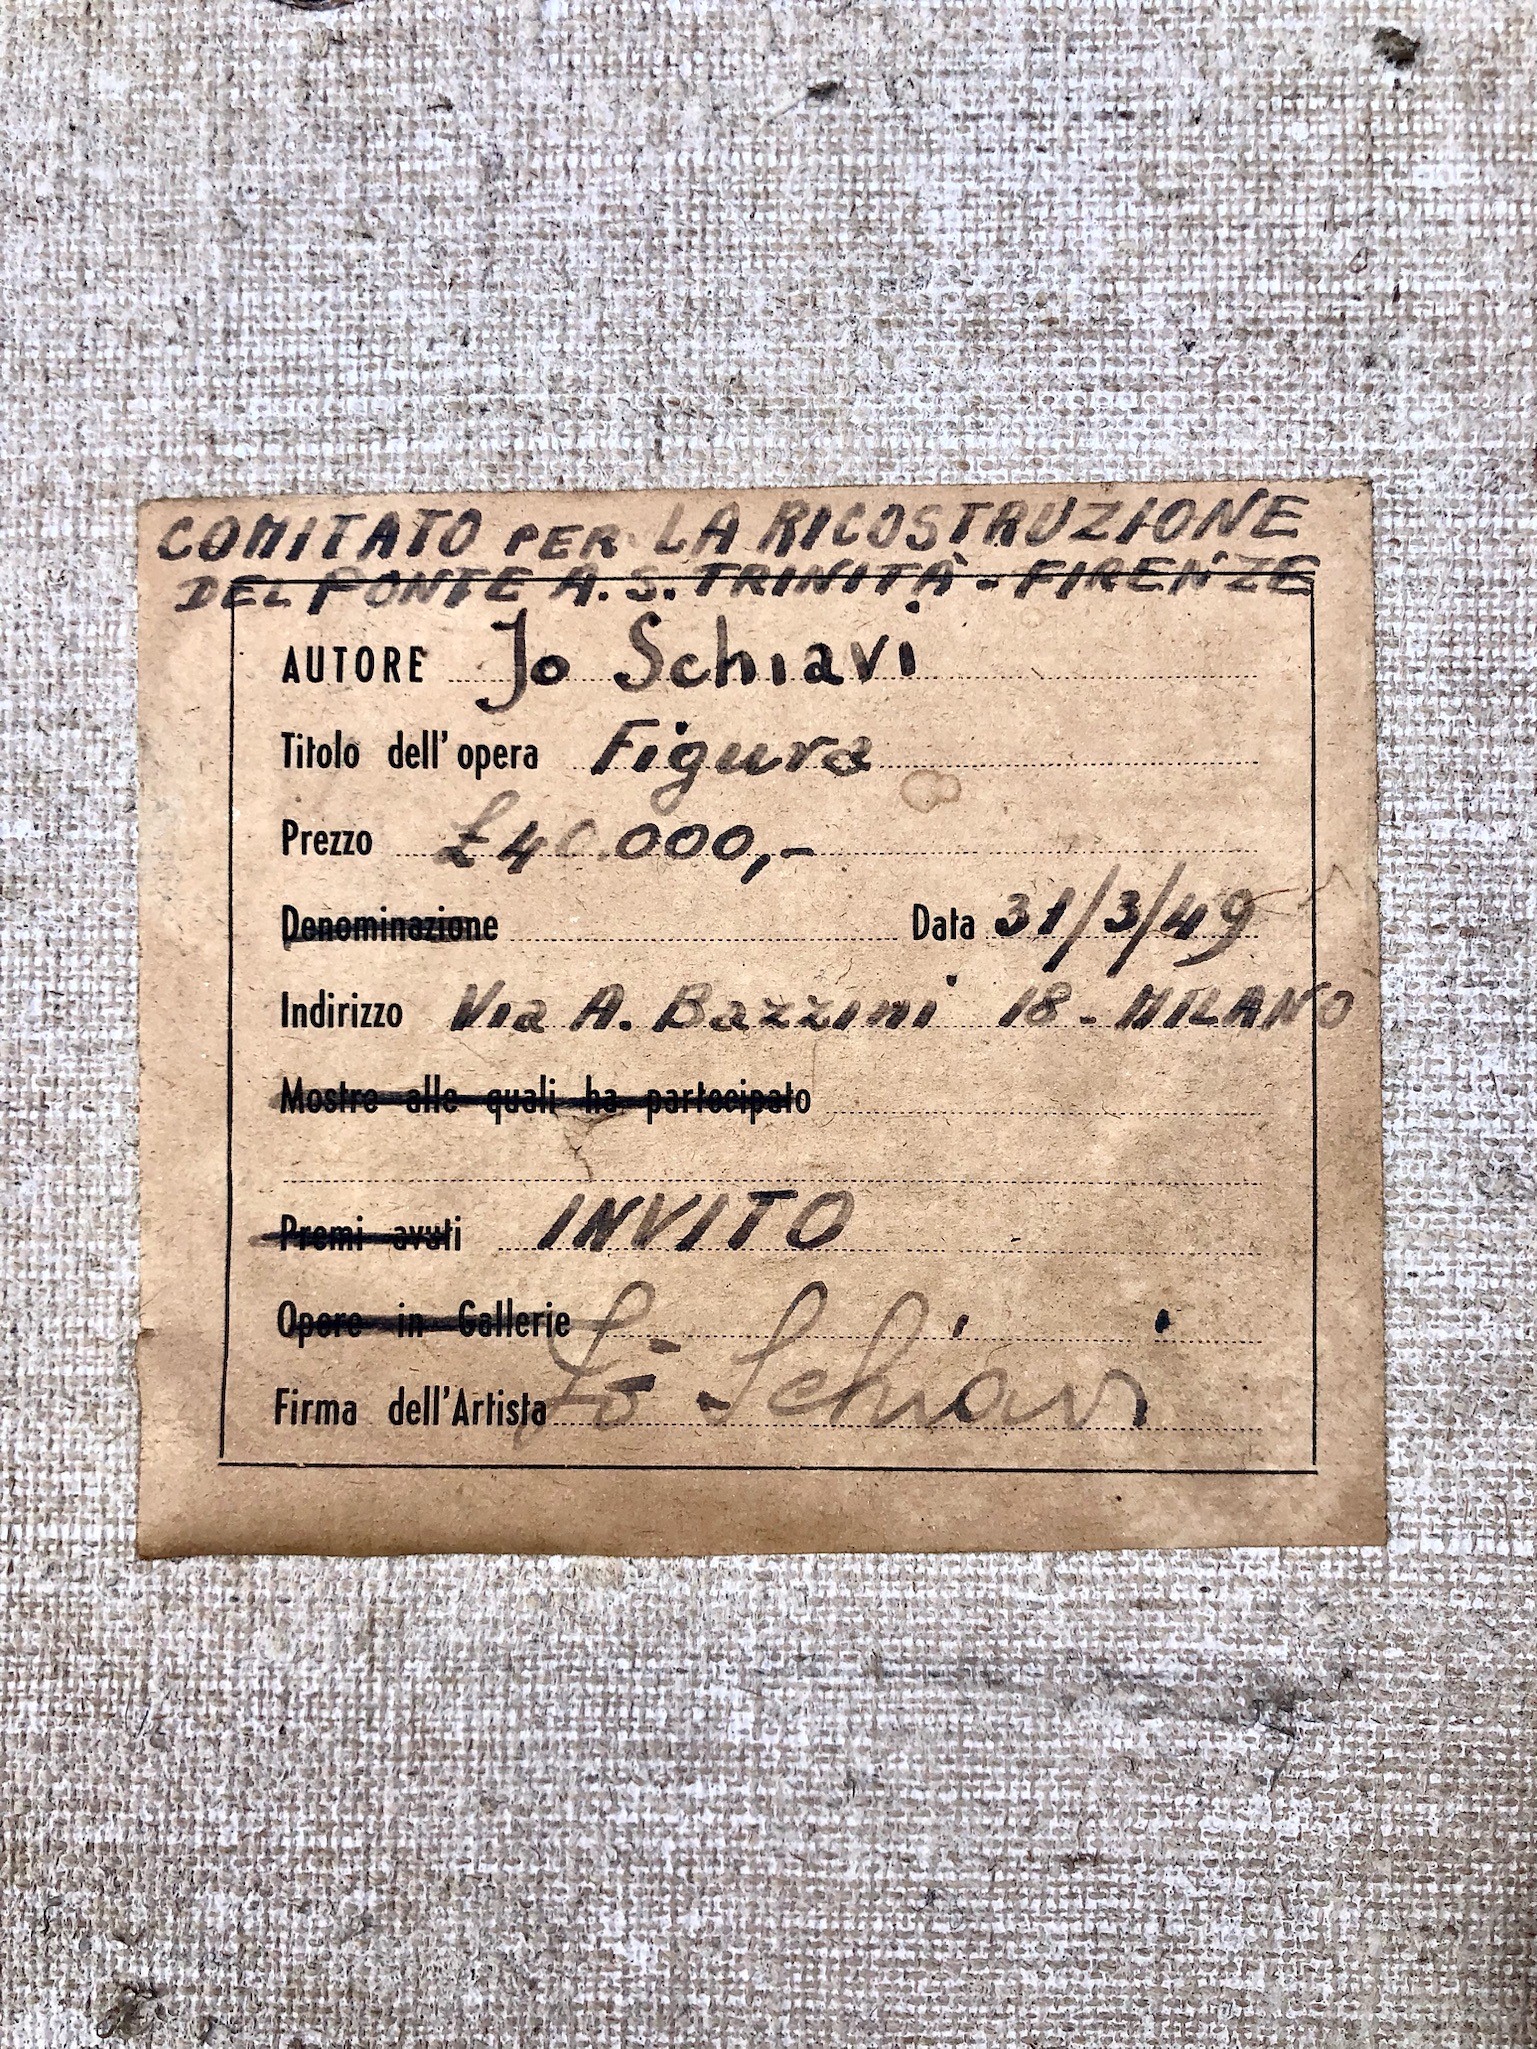 COMITATO PER LA RICOSTRUZIONE
DEL PONTE A.S. TRINITÀ - FIRENZE
AUTORE Jo Schiavi
Titolo dell'opera Figura
Prezzo £40.000,-
Denominazione Data 31/3/49
Indirizzo Via A. Bazzini 18 - MILANO
Mostre alle quali ha partecipato
Premi avuti INVITO
Opere in Gallerie
Firma dell'Artista Jo Schiavi